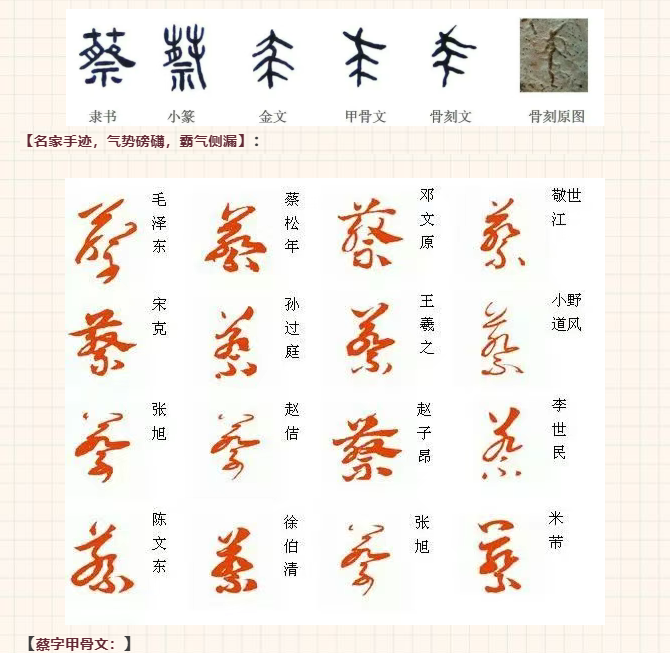 蔡 蔡
隶书 小篆 金文 甲骨文 骨刻文 骨刻原图
【名家手迹，气势磅礴，霸气侧漏】：
蔡 毛泽东 蔡 蔡松年 蔡 邓文原 蔡 敬世江
蔡 宋克 蔡 孙过庭 蔡 王羲之 蔡 小野道风
蔡 张旭 蔡 赵佶 蔡 赵子昂 蔡 李世民
蔡 陈文东 蔡 徐伯清 蔡 张旭 蔡 米芾
【蔡字甲骨文：】